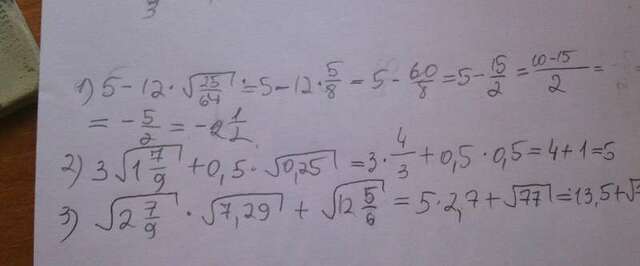 1) 5 - 12 · √(25/64) = 5 - 12 · 5/8 = 5 - 60/8 = 5 - 15/2 = (10-15)/2 =
= - 5/2 = -2 1/2
2) 3 √(1 7/9) + 0,5 · √(0,25) = 3 · 4/3 + 0,5 · 0,5 = 4 + 1 = 5
3) √(2 7/9) · √(7,29) + √(12 5/6) = 5 · 2,7 + √77 = 13,5 + √